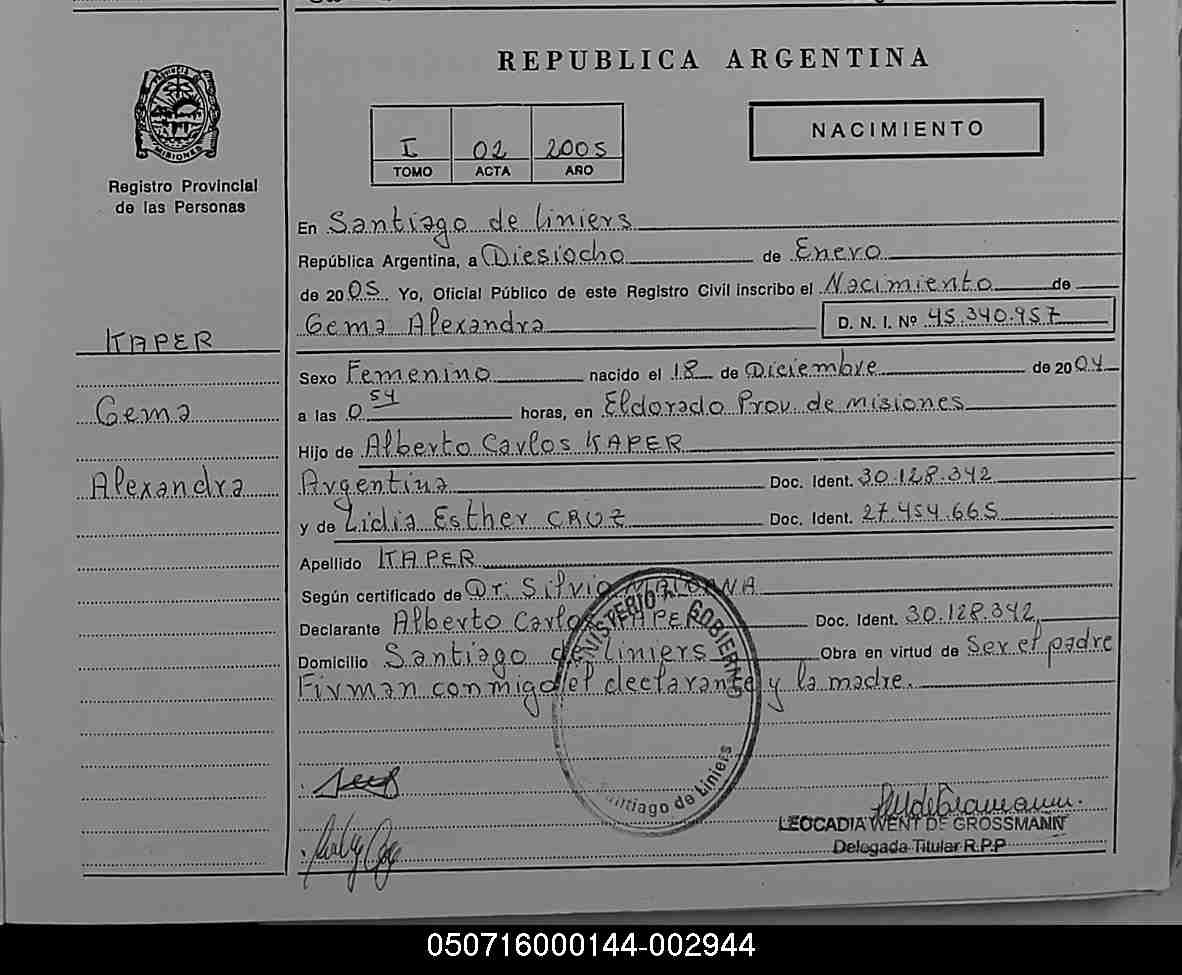 REPUBLICA ARGENTINA
PROVINCIA DE
MISIONES
Registro Provincial
de las Personas
I 02 2005
TOMO ACTA AÑO
NACIMIENTO
En Santiago de Liniers
República Argentina, a Diesiocho de Enero
de 2005 Yo, Oficial Público de este Registro Civil inscribo el Nacimiento de
Gema Alexandra D. N. I. Nº 45.340.957
KAPER
Gema
Alexandra
Sexo Femenino nacido el 18 de Diciembre de 2004
a las 0 54 horas, en Eldorado Prov. de Misiones
Hijo de Alberto Carlos KAPER
Argentina Doc. Ident. 30.128.342
y de Lidia Esther CRUZ Doc. Ident. 27.454.665
Apellido KAPER
Según certificado de Dr. Silvio
Declarante Alberto Carlos KAPER Doc. Ident. 30.128.342
Domicilio Santiago de Liniers Obra en virtud de Ser el padre
Firman conmigo el declarante y la madre.
MINISTERIO GOBIERNO
Santiago de Liniers
LEOCADIA WENT DE GROSSMANN
Delegada Titular R.P.P
050716000144-002944